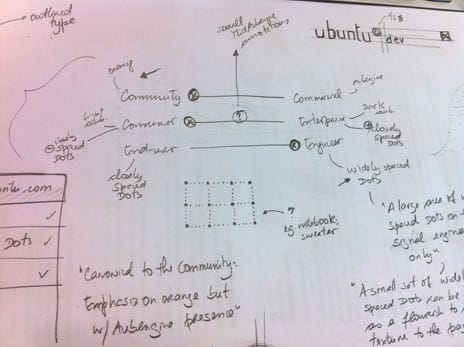 outlined
type
small
Mid Aubergine
annotations
ubuntu dev
orange
Community
Commercial
aubergine
Consumer
?
Enterprise
Dark
closely
spaced
DOTS
closely
spaced
DOTS
End-user
Engineer
closely
spaced
DOTS
widely spaced
DOTS
ntu.com
DOTS
?
eg. notebook,
sweater
"A large area of
spaced DOTS on
signal engine
only"
"Canonical to the Community:
Emphasis on orange but
w/ Aubergine presence"
"A small set of widel
spaced DOTS can be
as a flourish to
texture to the pa